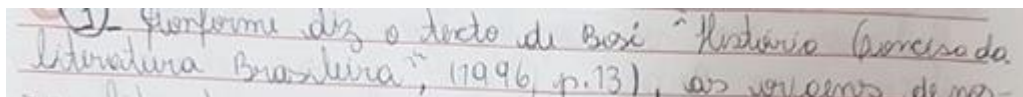 1)- Conforme diz o texto de Bosi "História Concisa da
Literatura Brasileira", (1996, p.13), as origens de nos-